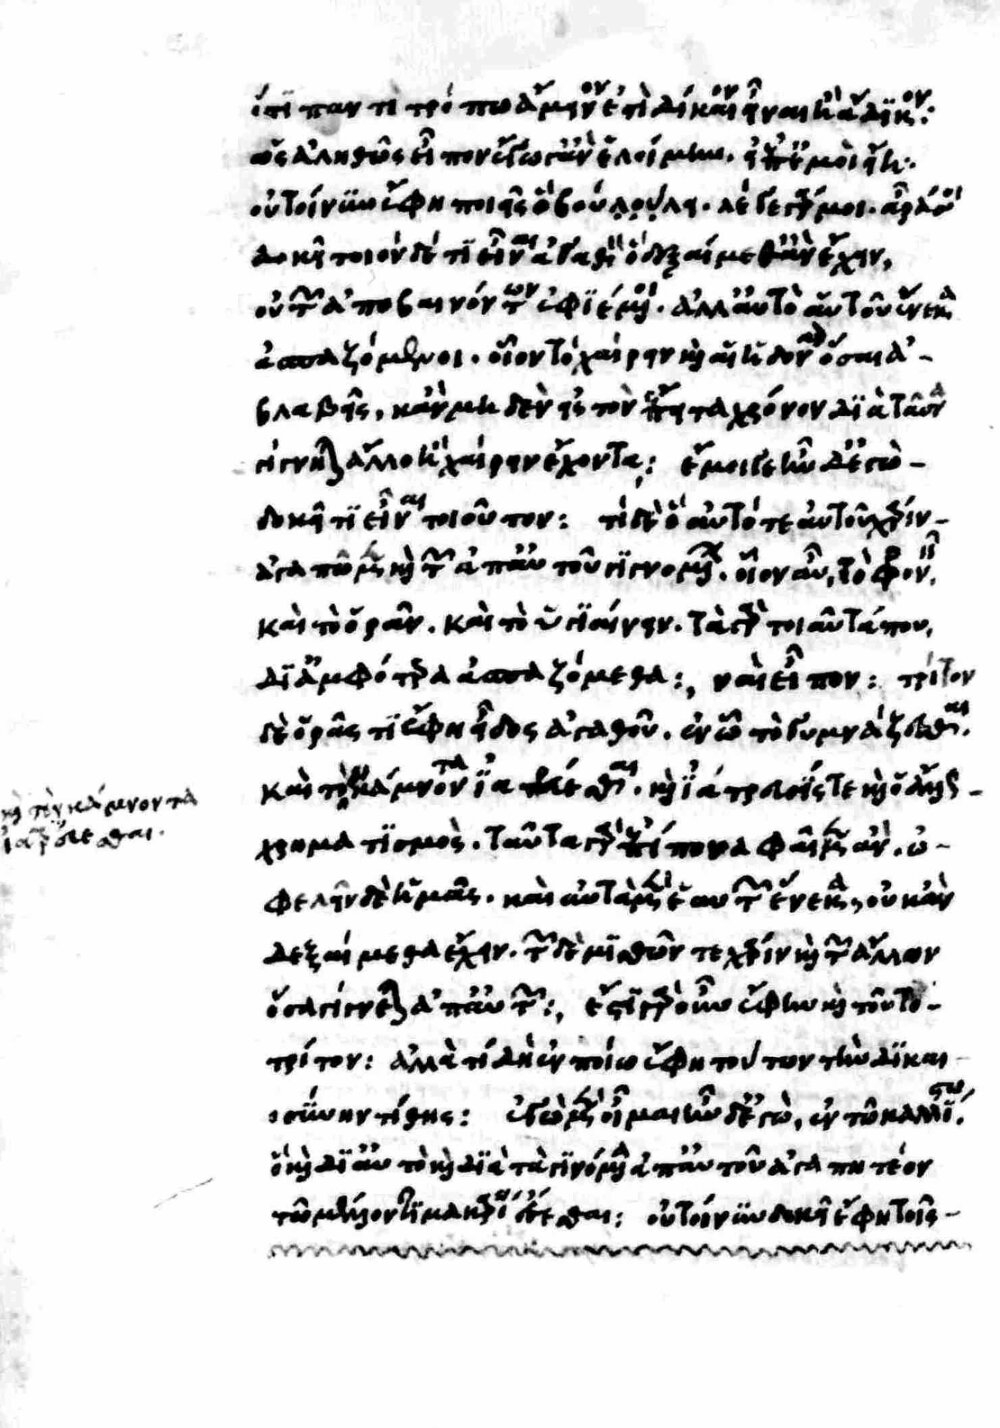 ὅτι παντὶ τρόπω ἄμεινον ἐστὶ δίκαιον εἶναι ἢ ἄδικον·
ὡς ἀληθῶς εἶπον ἔγωγ' ἂν ἑλοίμην. εἰ ἐπ' ἐμοὶ εἴη·
οὐ τοίνυν ἔφη ποιεῖς ὃ βούλει. λέγε γάρ μοι. ἆρά σοι
δοκεῖ τοιόνδέ τι εἶναι ἀγαθὸν ὃ δεξαίμεθ' ἂν ἔχειν,
οὐ τῶν ἀποβαινόντων ἐφιέμενοι. ἀλλ' αὐτὸ αὑτοῦ ἕνεκα
ἀσπαζόμενοι. οἷον τὸ χαίρειν καὶ αἱ ἡδοναὶ ὅσαι ἀ-
βλαβεῖς, κἂν μηδὲν εἰς τὸν ἔπειτα χρόνον διὰ ταύτας
γίγνηται ἄλλο ἢ χαίρειν ἔχοντα; ἔμοιγε ἦν δ' ἐγὼ-
δοκεῖ τι εἶναι τοιοῦτον: τί δὲ ὃ αὐτό τε αὑτοῦ χάριν-
ἀγαπῶμεν καὶ τῶν ἀπ' αὐτοῦ γιγνομένων. οἷον αὖ, τὸ φρονεῖν,
καὶ τὸ ὁρᾶν. καὶ τὸ ὑγιαίνειν. τὰ γὰρ τοιαῦτά που,
δι' ἀμφότερα ἀσπαζόμεθα:, ναὶ εἶπον: τρίτον
δὲ ὁρᾶς τι ἔφη εἶδος ἀγαθοῦ. ἐν ᾧ τὸ γυμνάζεσθαι.
καὶ τὸ κάμνοντα ἰατρεύεσθαι. καὶ ἰάτρευσίς τε καὶ ὁ ἄλλος-
χρηματισμὸς. ταῦτα γὰρ ἐπίπονα φαῖμεν ἂν. ὠ-
φελεῖν δὲ ἡμᾶς. καὶ αὐτὰ μὲν ἑαυτῶν ἕνεκα, οὐκ ἂν
δεξαίμεθα ἔχειν. τῶν δὲ μισθῶν τε χάριν καὶ τῶν ἄλλων
ὅσα γίγνεται ἀπ' αὐτῶν:, ἔστι γὰρ οὖν ἔφην καὶ τοῦτο-
τρίτον: ἀλλὰ τί δὴ ἐν ποίω ἔφη τούτων τὴν δικαι-
οσύνην τίθης: ἐγὼ μὲν οἶμαι ἦν δ' ἐγὼ, ἐν τῶ καλλίστω.
ὃ καὶ δι' αὑτὸ καὶ διὰ τὰ γιγνόμενα ἀπ' αὐτοῦ ἀγαπητέον
τῶ μέλλοντι μακαρίω ἔσεσθαι: οὐ τοίνυν δοκεῖ ἔφη τοῖς-
καὶ τὸν κάμνοντα
ἰατρεύεσθαι.